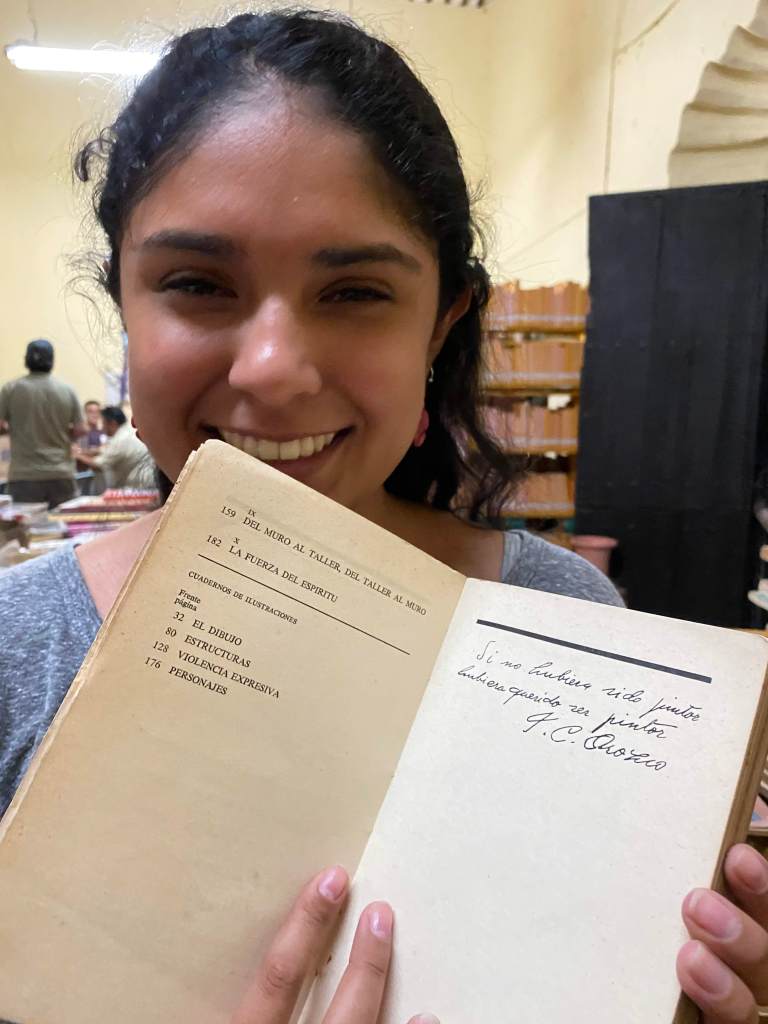 IX
159 DEL MURO AL TALLER, DEL TALLER AL MURO
X
182 LA FUERZA DEL ESPIRITU
CUADERNOS DE ILUSTRACIONES
Frente
página
32 EL DIBUJO
80 ESTRUCTURAS
128 VIOLENCIA EXPRESIVA
176 PERSONAJES
Si no hubiera sido pintor
hubiera querido ser pintor
J. C. Orozco